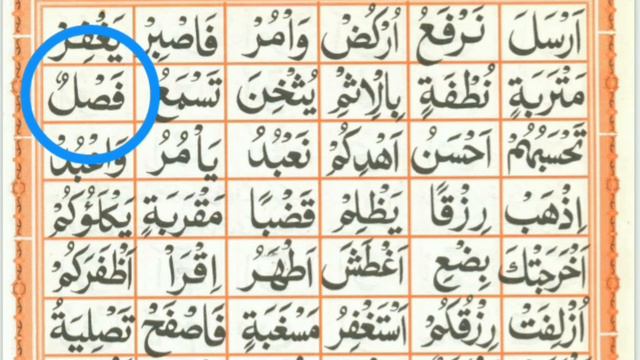 اَرْسَلَ نَرْفَعُ اُرْكُضْ وَاْمُرْ فَاصْبِرْ يَغْفِرْ
مَتْرَبَةٍ نُطْفَةٍ بِالْاِثْمِ يُثْخِنَ تَسْمَعُ فَصْلٌ
تَحْسَبُهُمْ اَحْسَنُ اَهْدِكُمْ نَعْبُدُ يَاْمُرُ وَاعْبُدُ
اِذْهَبْ رِزْقًا يَظْلِمْ قَضْبًا مَقْرَبَةٍ يَكْلَؤُكُمْ
اَخْرَجَتْكَ بِضْعِ اَغْطَشَ اَطْهَرُ اِقْرَاْ اَظْفَرَكُمْ
اُزْلِفَتْ رِزْقُكُمْ اَسْتَغْفِرُ مَسْغَبَةٍ فَاصْفَحْ تَصْلِيَةُ